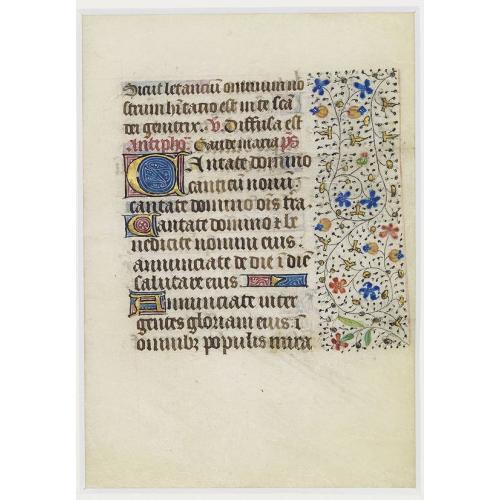 Sicut letanciū omnium no
strum hītatio est in te scā
dei genitrix. V. Diffusa est
Antipho. Gaude maria ps
Cantate domino
canticū nouū.
cantate domino oīs tra.
Cantate domino & be
nedicite nomini eius.
annunciate de die ī diē
salutare eius
Annunciate inter
gentes gloriam eius. ī
omnibz populis mira